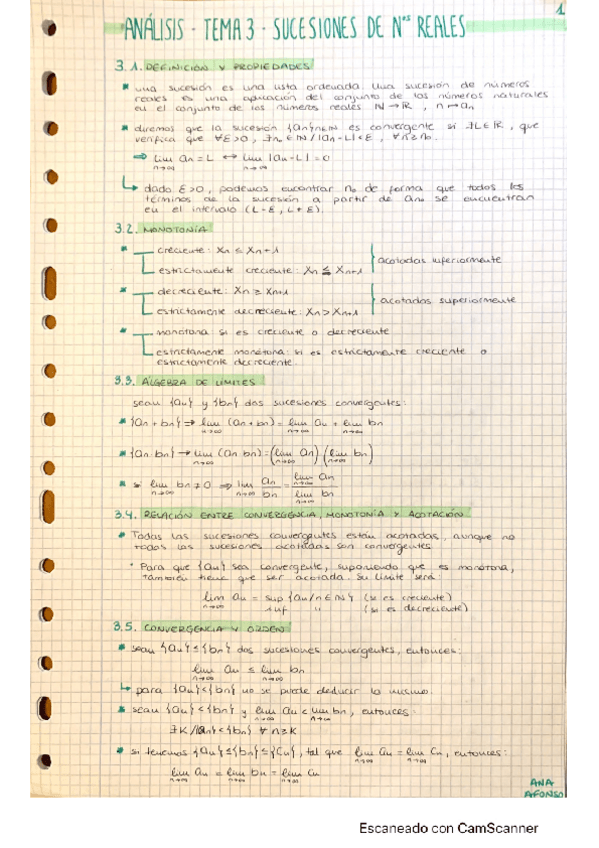 1
ANÁLISIS - TEMA 3 - SUCESIONES DE Nºs REALES
3.1. DEFINICIÓN Y PROPIEDADES
* una sucesión es una lista ordenada. Una sucesión de números
reales es una aplicación del conjunto de los números naturales
en el conjunto de los números reales ℕ→ℝ, n↦an
* diremos que la sucesión {an}n∈ℕ es convergente si ∃L∈ℝ, que
verifica que ∀ε>0, ∃n₀∈ℕ / |an-L|<ε, ∀n≥n₀.
⇒ lim an = L ↔ lim |an-L| = 0
n→∞ n→∞
↳ dado ε>0, podemos encontrar n₀ de forma que todos los
términos de la sucesión a partir de an₀ se encuentran
en el intervalo (L-ε, L+ε).
3.2. MONOTONÍA
* creciente: Xn ≤ Xn+1
estrictamente creciente: Xn ≤ Xn+1
acotadas inferiormente
* decreciente: Xn ≥ Xn+1
estrictamente decreciente: Xn > Xn+1
acotadas superiormente
* monótona si es creciente o decreciente
estrictamente monótona: si es estrictamente creciente o
estrictamente decreciente.
3.3. ÁLGEBRA DE LÍMITES
sean {an} y {bn} dos sucesiones convergentes:
* {an+bn} ⇒ lim (an+bn) = lim an + lim bn
n→∞ n→∞ n→∞
* {an·bn} → lim (an·bn) = (lim an)(lim bn)
n→∞ n→∞ n→∞
* si lim bn ≠ 0 ⇒ lim an/bn = lim an / lim bn
n→∞ n→∞ n→∞ n→∞
3.4. RELACIÓN ENTRE CONVERGENCIA, MONOTONÍA Y ACOTACIÓN
* Todas las sucesiones convergentes están acotadas, aunque no
todas las sucesiones acotadas son convergentes
* Para que {an} sea convergente, suponiendo que es monótona,
también tiene que ser acotada. Su límite será:
lim an = sup {an/n∈ℕ} (si es creciente)
n→∞ inf " (si es decreciente)
3.5. CONVERGENCIA Y ORDEN
* sean {an}≤{bn} dos sucesiones convergentes, entonces:
lim an ≤ lim bn
n→∞ n→∞
↳ para {an}<{bn} no se puede deducir lo mismo.
* sean {an}<{bn} y lim an < lim bn, entonces:
n→∞ n→∞
∃K/{an}<{bn} ∀n≥K
* si tenemos {an}≤{bn}≤{cn}, tal que lim an = lim cn, entonces:
n→∞ n→∞
lim an = lim bn = lim cn
n→∞ n→∞ n→∞
ANA
AFONSO
Escaneado con CamScanner